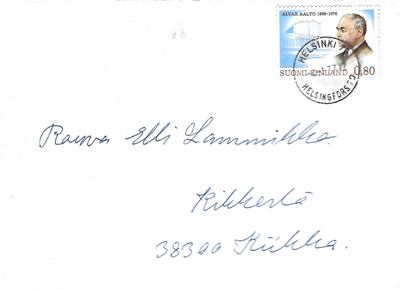 ALVAR AALTO 1898-1976
HELSINKI
SUOMI-FINLAND 0,80
HELSINGFORS
Rouva Elli Lammikka.
Kikkerlä
38300 Kiikka.